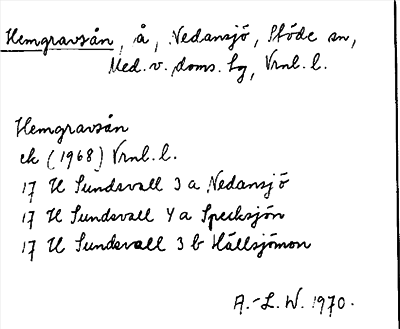 Hemgravsån, å, Nedansjö, Stöde sn,
Med. v. doms. tg, Vrnl. l.
Hemgravsån
ek (1968) Vrnl. l.
17 H Sundsvall 3 a Nedansjö
17 H Sundsvall 4 a Specksjön
17 H Sundsvall 3 b Hällsjömon
A.-L. W. 1970.